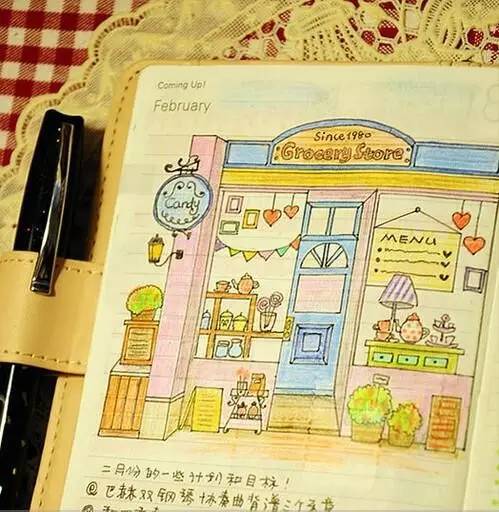 Coming Up!
February
Since 1980
Grocery Store
Candy
MENU
二月份的一些计划和目标!
@ 巴赫双钢琴协奏曲背谱三个乐章